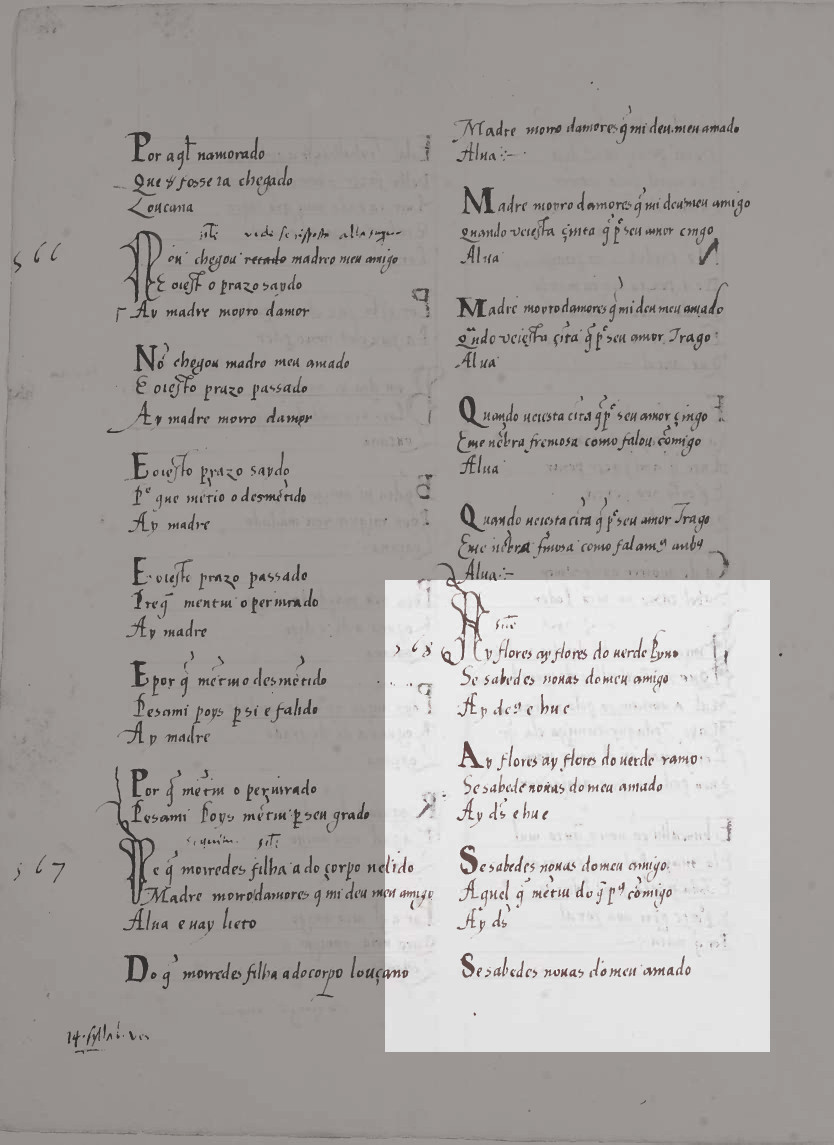 Por a q̄l namorado
Que y fosse ia chegado
Loucana
566
Nōn chegou madre o meu amigo
E oieſto o prazo saydo
Ay madre moyro damor
No chegou madro meu amado
E oieſto prazo passado
Ay madre moiro damor
E oieſto prazo saydo
Pᵉ que mētio o desmētido
Ay madre
E oieſto prazo passado
Preq̄ mentiu o periurado
Ay madre
E por q̄ mētiuo desmētido
Pesami poys p si e falido
Ay madre
Por q̄ mētiu o periurado
Pesami Poys mētiu p seu grado
567
De q̄ moiredes filha a do corpo uelido
Madre moiro damores q mi deu meu amigo
Alua e uay lieto
Do q̄ morredes filha a do corpo louçano
14 syllab. ver
Madre moiro damores q̄ mi deu meu amado
Alua
Madre moyro damores q̄ mi deu meu amigo
quando ueieſta çinta q̄ pᵉ seu amor cingo
Alua
Madre moyro damores q̄ mi deu meu amado
Qūdo ueieſta çīta q̄ pᵉ seu amor Trago
Alua
Quando ueiesta cīta q̄ pᵉ seu amor çingo
Eme nēbra fremosa como falou cōmigo
Alua
Quando ueiesta cīta q̄ pᵉ seu amor Trago
Eme nēbra fmosa como falamꝯ anbꝯ
Alua
568
Ay flores ay flores do uerde Pyno
Se sabedes nouas do meu amigo
Ay deꝯ e hu e
Ay flores ay flores do uerde ramo
Se sabede nouas do meu amado
Ay ds̄ e hu e
Se sabedes nouas do meu amigo
Aquel q̄ mētiu do q̄ pꝯ cōmigo
Ay ds̄
Se sabedes nouas do meu amado